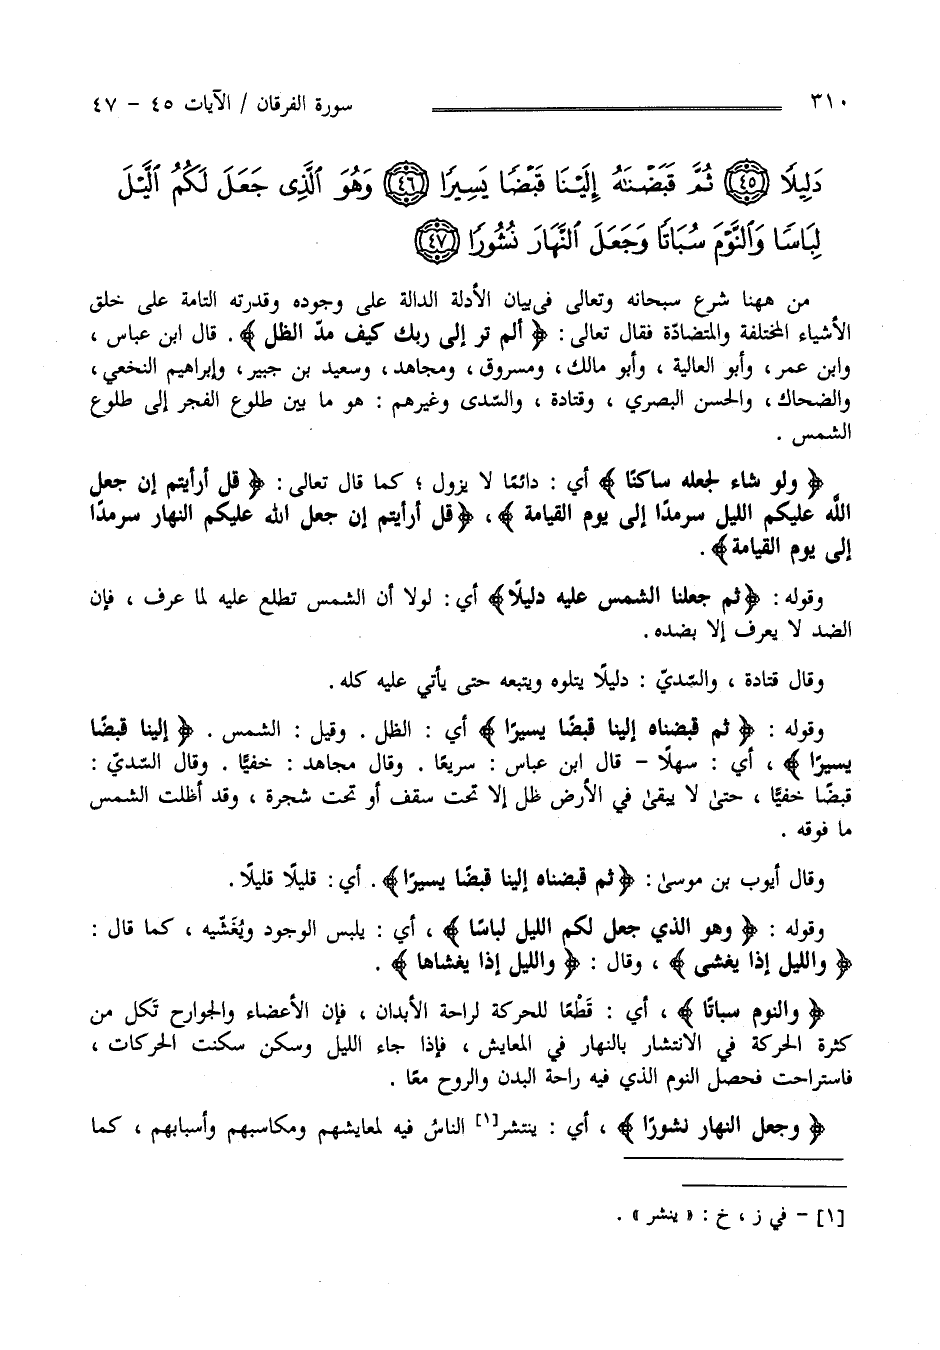 ٣١٠ سورة الفرقان / الآيات ٤٥ – ٤٧
دَلِيلًا ﴿٤٥﴾ ثُمَّ قَبَضْنَٰهُ إِلَيْنَا قَبْضًا يَسِيرًا ﴿٤٦﴾ وَهُوَ ٱلَّذِى جَعَلَ لَكُمُ ٱلَّيْلَ
لِبَاسًا وَٱلنَّوْمَ سُبَاتًا وَجَعَلَ ٱلنَّهَارَ نُشُورًا ﴿٤٧﴾
من ههنا شرع سبحانه وتعالى في بيان الأدلة الدالة على وجوده وقدرته التامة على خلق
الأشياء المختلفة والمتضادّة فقال تعالى : ﴿ ألم تر إلى ربك كيف مدّ الظل ﴾ . قال ابن عباس ،
وابن عمر ، وأبو العالية ، وأبو مالك ، ومسروق ، ومجاهد ، وسعيد بن جبير ، وإبراهيم النخعي ،
والضحاك ، والحسن البصري ، وقتادة ، والسّدى وغيرهم : هو ما بين طلوع الفجر إلى طلوع
الشمس .
﴿ ولو شاء لجعله ساكنًا ﴾ أي : دائمًا لا يزول ؛ كما قال تعالى : ﴿ قل أرأيتم إن جعل
اللَّه عليكم الليل سرمدًا إلى يوم القيامة ﴾ ، ﴿قل أرأيتم إن جعل الله عليكم النهار سرمدًا
إلى يوم القيامة﴾ .
وقوله : ﴿ثم جعلنا الشمس عليه دليلًا﴾ أي : لولا أن الشمس تطلع عليه لما عرف ، فإن
الضد لا يعرف إلا بضده .
وقال قتادة ، والسّديّ : دليلًا يتلوه ويتبعه حتى يأتي عليه كله .
وقوله : ﴿ ثم قبضناه إلينا قبضًا يسيرًا ﴾ أي : الظل . وقيل : الشمس . ﴿ إلينا قبضًا
يسيرًا ﴾ ، أي : سهلًا – قال ابن عباس : سريعًا . وقال مجاهد : خفيًّا . وقال السّديّ :
قبضًا خفيًّا ، حتىٰ لا يبقىٰ في الأرض ظل إلا تحت سقف أو تحت شجرة ، وقد أظلت الشمس
ما فوقه .
وقال أيوب بن موسىٰ : ﴿ثم قبضناه إلينا قبضًا يسيرًا﴾ . أي : قليلًا قليلًا .
وقوله : ﴿ وهو الذي جعل لكم الليل لباسًا ﴾ ، أي : يلبس الوجود ويُغَشّيه ، كما قال :
﴿ والليل إذا يغشى ﴾ ، وقال : ﴿ والليل إذا يغشاها ﴾ .
﴿ والنوم سباتًا ﴾ ، أي : قَطْعًا للحركة لراحة الأبدان ، فإن الأعضاء والجوارح تَكل من
كثرة الحركة في الانتشار بالنهار في المعايش ، فإذا جاء الليل وسكن سكنت الحركات ،
فاستراحت فحصل النوم الذي فيه راحة البدن والروح معًا .
﴿ وجعل النهار نشورًا ﴾ ، أي : ينتشر[١] الناسُ فيه لمعايشهم ومكاسبهم وأسبابهم ، كما
[١] – في ز ، خ : « ينشر » .